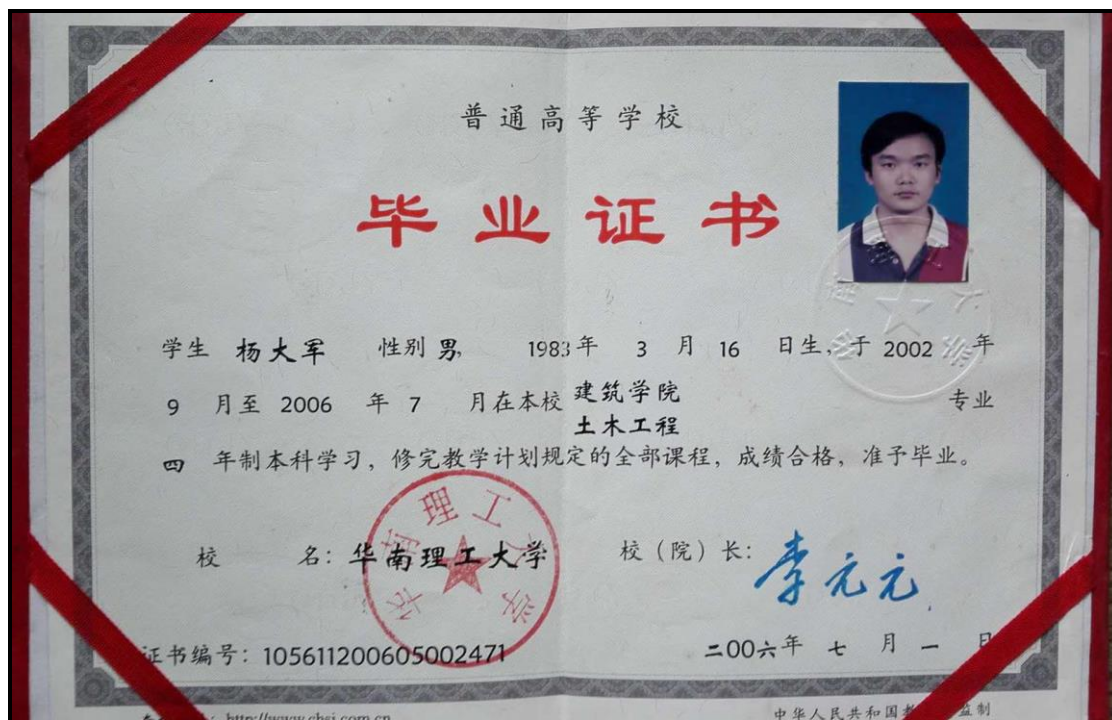 普通高等学校
毕业证书
学生 杨大军 性别 男, 1983年 3 月 16 日生, 于 2002 年
9 月至 2006 年 7 月在本校 建筑学院 土木工程 专业
四 年制本科学习, 修完教学计划规定的全部课程, 成绩合格, 准予毕业。
校 名: 华南理工大学 校(院)长: 李元元
华南理工大学
证书编号: 105611200605002471 二00六年 七 月 一 日
http://www.chsi.com.cn 中华人民共和国教 监制